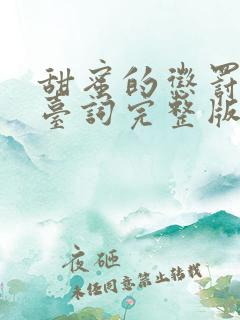 甜蜜的懲罰
臺詞完整版
夜砸
未任同意禁止转载